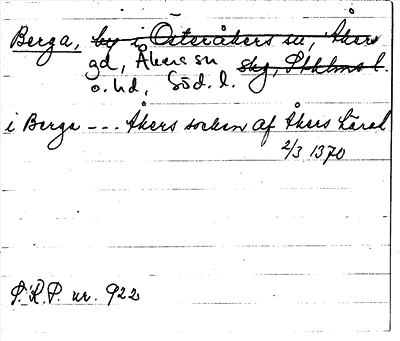 Berga, by i Österåkers sn, Åkers
gd, Åkers sn skg, Sthlms l.
o. hd, Söd. l.
i Berga --- Åkers sockm af Åkers häradh
2/3 1370
S.R.P. nr. 922